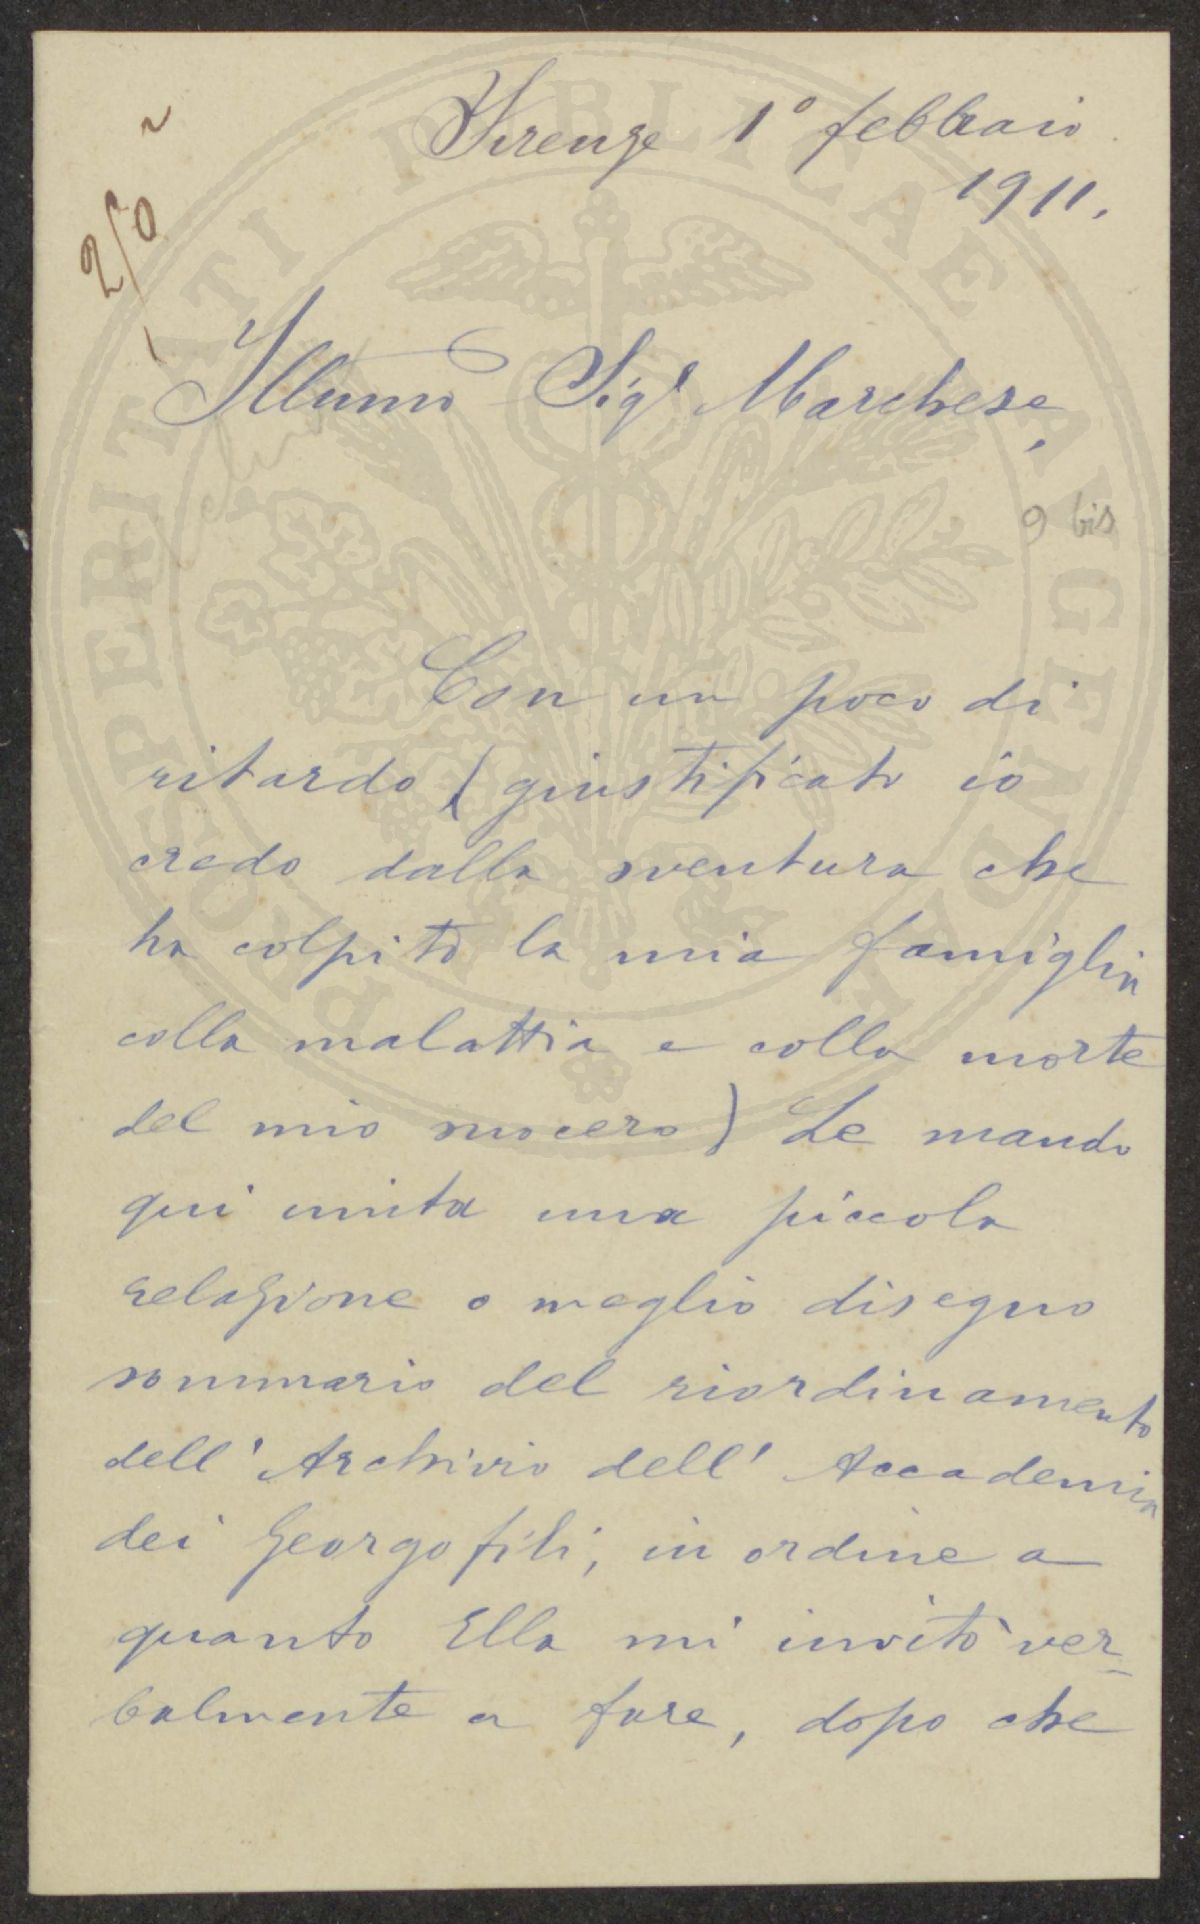 Firenze 1º febbraio
1911.
250
Illumo Sigr Marchese,
9 bis
Con un poco di
ritardo (giustificato io
credo dalla sventura che
ha colpito la mia famiglia
colla malattia e colla morte
del mio suocero) Le mando
qui unita una piccola
relazione o meglio disegno
sommario del riordinamento
dell'Archivio dell'Accademia
dei Georgofili, in ordine a
quanto Ella mi invitò ver-
balmente a fare, dopo che
PROSPERITATI PUBLICAE AVGENDAE